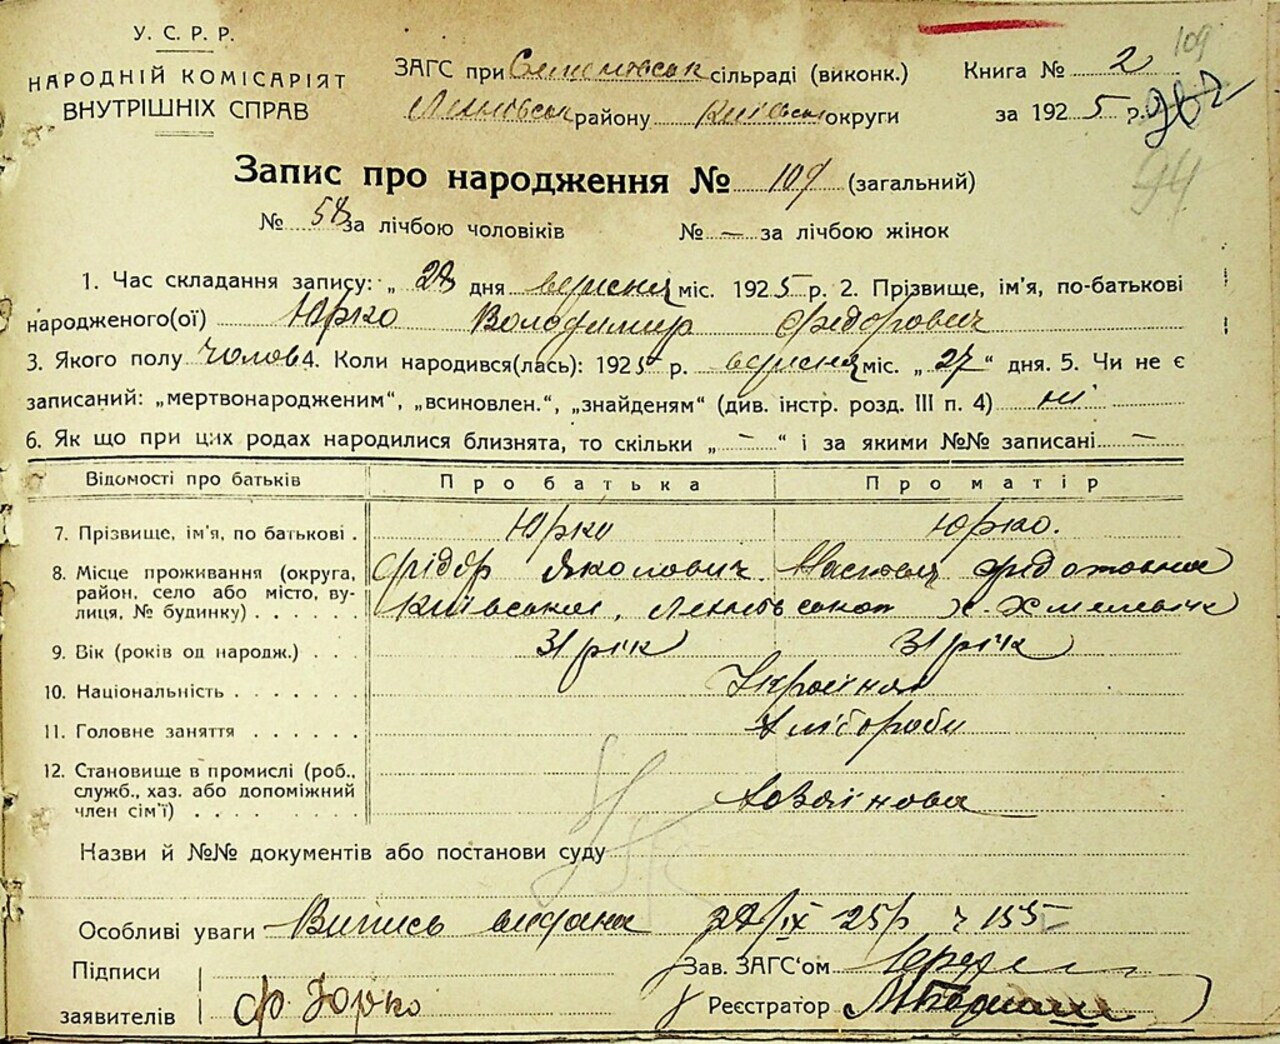 У. С. Р. Р.
НАРОДНІЙ КОМІСАРІЯТ
ВНУТРІШНІХ СПРАВ
ЗАГС при сільраді (виконк.)
району Київськ округи
Книга № 2
за 1925 р.
109
94
Запис про народження № 109 (загальний)
№ 58 за лічбою чоловіків № — за лічбою жінок
1. Час складання запису: „ 28 дня вересня міс. 1925 р. 2. Прізвище, ім'я, по-батькові
народженого(ої) Юрко Володимир Федорович
3. Якого полу чолов 4. Коли народився(лась): 1925 р. вересня міс. „ 27 “ дня. 5. Чи не є
записаний: „мертвонародженим“, „всиновлен.“, „знайденям“ (див. інстр. розд. III п. 4) ні
6. Як що при цих родах народилися близнята, то скільки „ — “ і за якими №№ записані —
Відомості про батьків Про батька Про матір
7. Прізвище, ім'я, по батькові . Юрко Юрко.
8. Місце проживання (округа, район, село або місто, вулиця, № будинку) . . . . . . Фідор Якович Федотовна
Київської, х.
9. Вік (років од народж.) . . . 31 рік 31 рік
10. Національність . . . . . . .
11. Головне заняття . . . . . . Хлібороби
12. Становище в промислі (роб., служб., хаз. або допоміжний член сім'ї) . . . . . . . .
Назви й №№ документів або постанови суду
Особливі уваги Випись видана 28/IX 25 р ч 155
Підписи
заявителів Ф. Юрко
Зав. ЗАГС‘ом
Реєстратор